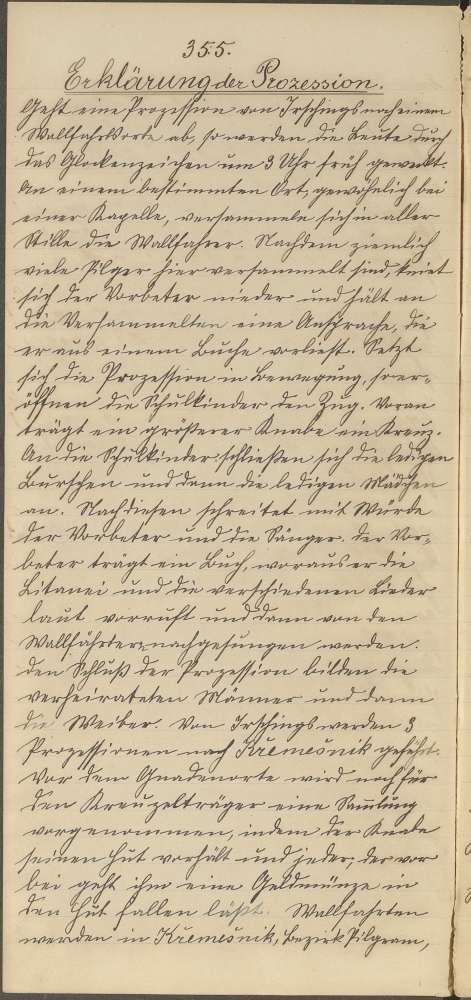 355.
Erklärung der Prozession.
Geht eine Prozession von Irschings nach einem
Wallfahrtsorte ab, so werden die Leute durch
das Glockenzeichen um 3 Uhr früh geweckt.
An einem bestimmten Ort, gewöhnlich bei
einer Kapelle, versammeln sich in aller
Stille die Wallfahrer. Nachdem ziemlich
viele Pilger hier versammelt sind, kniet
sich der Vorbeter nieder und hält an
die Versammelten eine Ansprache, die
er aus einem Buche vorliest. Setzt
sich die Prozession in Bewegung, so er-
öffnen die Schulkinder den Zug. Voran
trägt ein größerer Knabe ein Kreuz.
An die Schulkinder schließen sich die ledigen
Burschen und dann die ledigen Mädchen
an. Nach diesen schreitet mit Würde
der Vorbeter und die Sänger. Der Vor-
beter trägt ein Buch, woraus er die
Litanei und die verschiedenen Lieder
laut vorruft und dann von den
Wallfährtern nachgesungen werden.
Den Schluß der Prozession bilden die
verheirateten Männer und dann
die Weiber. Von Irschings werden 3
Prozessionen nach Křemešnik geführt.
Vor dem Gnadenorte wird noch für
den Kreuzelträger eine Sammlung
vorgenommen, indem der Knabe
seinen Hut vorhält und jeder, der vor
bei geht ihm eine Geldmünze in
den Hut fallen läßt. Wallfahrten
werden in Křemešnik, Bezirk Pilgram,